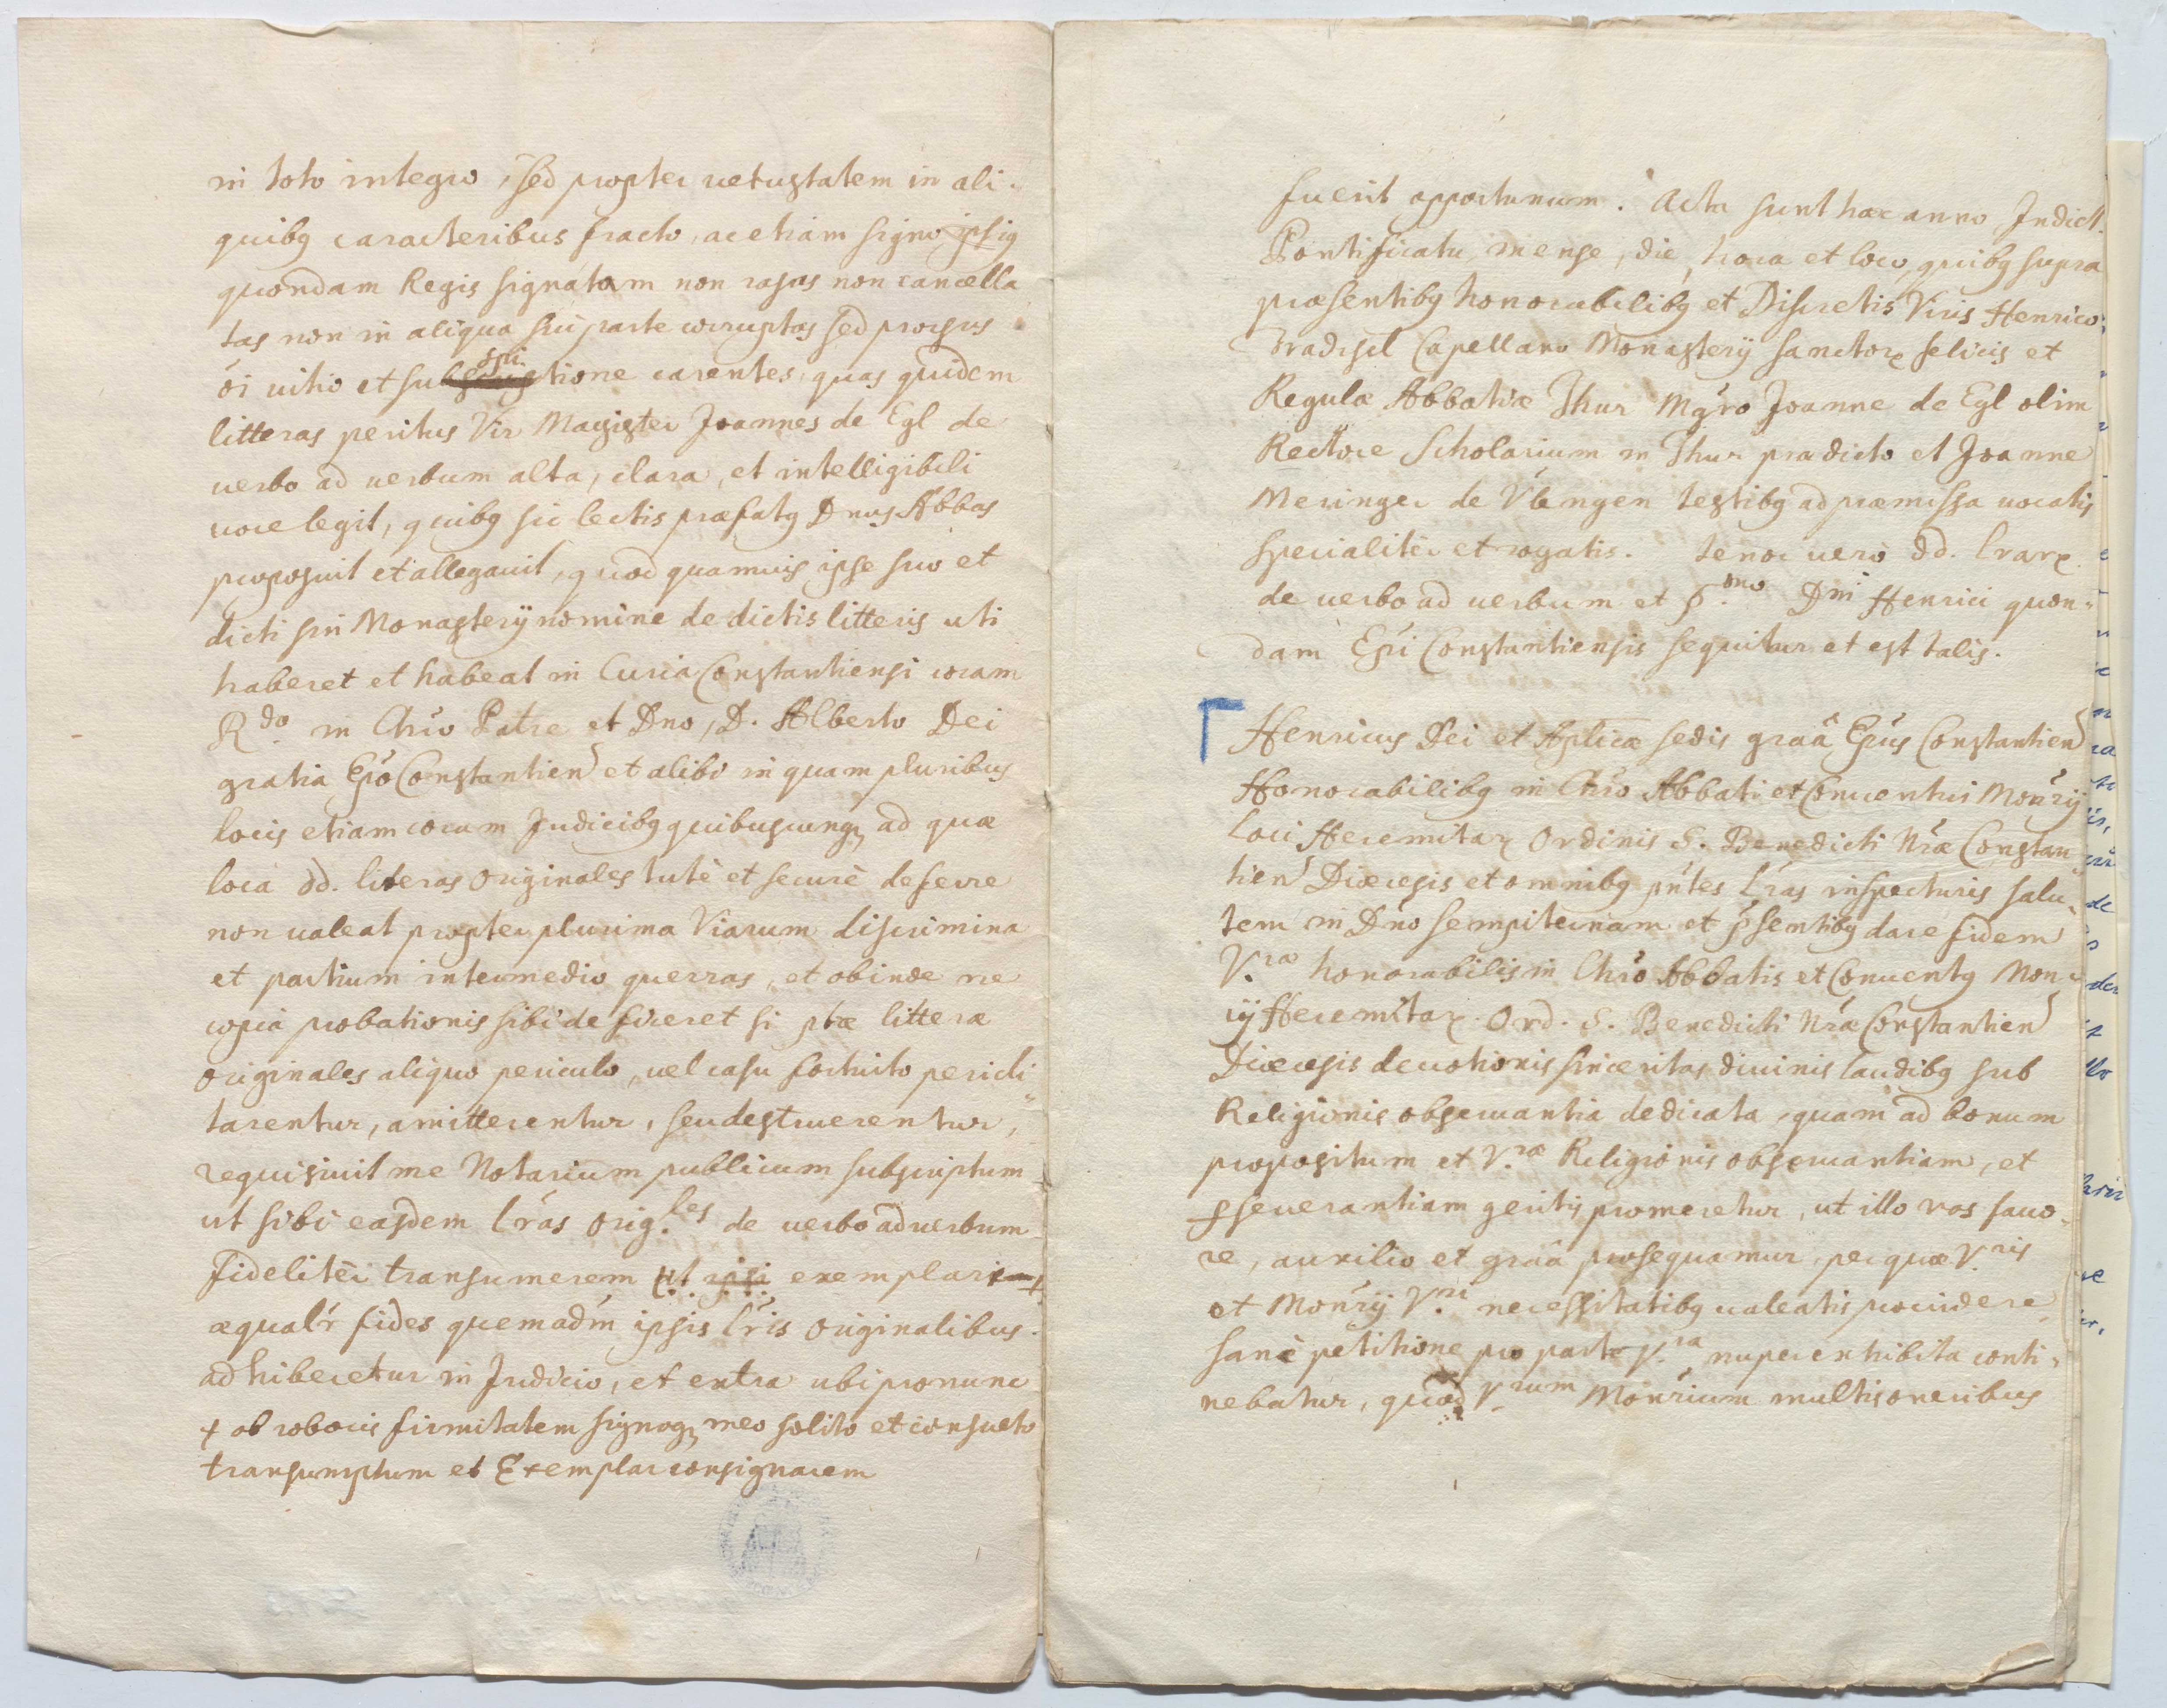 in toto integro, sed propter uetustatem in ali-
quibq caracteribus fracto, ac etiam signo ipsiq
quondam Regis signatam non rasas non cancella
tas non in aliqua sui parte corruptas sed prorsus
oi uitio et suspitione carentes, quas quidem
litteras peritus Vir Magister Joannes de Egl de
uerbo ad uerbum alta, clara, et intelligibili
uoce legit, quibq sic lectis præfatq Dnus Abbas
proposuit et allegauit, quod quamuis ipse suo et
dicti sui Monasterij nomine de dictis litteris uti
haberet et habeat in Curia Constantiensi coram
R.do in Chro Patre et Dno, D. Alberto Dei
gratia Epo Constantien et alibi in quam pluribus
locis etiam coram Judicibq quibuscunq, ad quæ
loca dd. literas originales tutè et securè deferre
non ualeat propter plurima Viarum discrimina
et partium intermedio guerras, et obinde ne
copia probationis sibi deficeret si ptæ litteræ
originales aliquo periculo, uel casu fortuito pericli-
tarentur, amitterentur, seu destruerentur,
requisiuit me Notarium publicum subscriptum
ut sibi easdem lras orig.les de uerbo ad uerbum
fidelitèr transumerem ut ipsi exemplari +
æqualr fides quemadm ipsis lris originalibus
adhiberetur in Judicio, et extra ubi pronunc
+ ob roboris firmitatem signoq, meo solito et consueto
transumptum et Exemplar consignarem
fuerit opportunum. Acta sunt hæc anno Indict.
Pontificatu, mense, die, hora et loco, quibq supra
præsentibq honorabilibq et Discretis Viris Henrico
Capellano Monasterij Sanctor felicis et
Regulæ Abbatiæ Thur Mgro Joanne de Egl olim
Rectore Scholarium in Thur prædicto et Joanne
Meringer de Vlengen testibq ad præmissa uocatis
specialitèr et rogatis. tenor uerò dd. lrar
de uerbo ad uerbum et p.mo Dni Henrici quon-
dam Epi Constantiensis sequitur et est talis.
Henricus Dei et Aplicæ sedis graâ Epus Constantien
Honorabilibq in Chro Abbati et Conuentui Monrij
loci Heremitar Ordinis S. Benedicti Nræ Constan-
tien Diœcesis et omnibq pntes lras inspecturis salu-
tem in Dno sempiternam et psentibq dare fidem
V.ræ honorabilis in Chro Abbatis et Conuentq Mon-
rij Heremitar. Ord. S. Benedicti Nræ Constantien
Diœcesis deuotionis sinceritas diuinis laudibq sub
Religionis obseruantia dedicata, quam ad bonum
propositum et V.ræ Religionis obseruantiam, et
pseuerantiam geritis promeretur, ut illo vos fauo-
re, auxilio et graâ prosequamur, per quæ V.ris
et Monrij V.ri necessitatibq ualeatis prouidere
sanè petitione pro parte V.ra nuper exhibita conti-
nebatur, quod V.rum Monrium multis oneribus